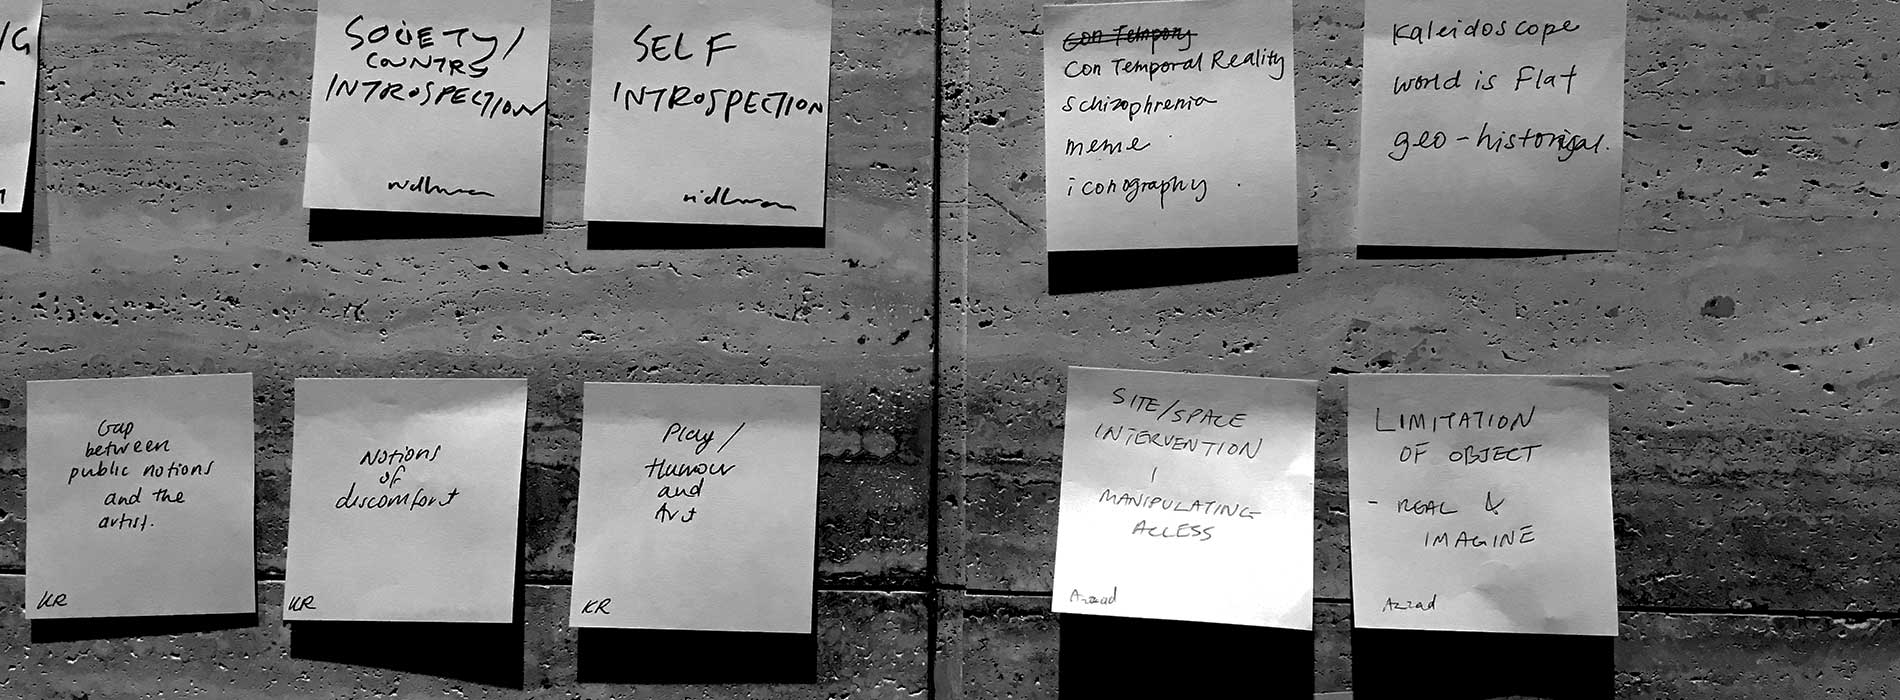 /G
SOCIETY/
COUNTRS
INTROSPECTION
SELF
INTROSPECTION
Con Tempory
Con Temporal Reality
schizophrenia
meme
iconography
Kaleidoscope
world is Flat
geo-historical.
Gap
between
public notions
and the
artist.
KR
Notions
of
discomfort
KR
Play/
Humour
and
Art
KR
SITE/SPACE
INTERVENTION
MANIPULATING
ACCESS
Azzad
LIMITATION
OF OBJECT
- REAL &
IMAGINE
Azzad